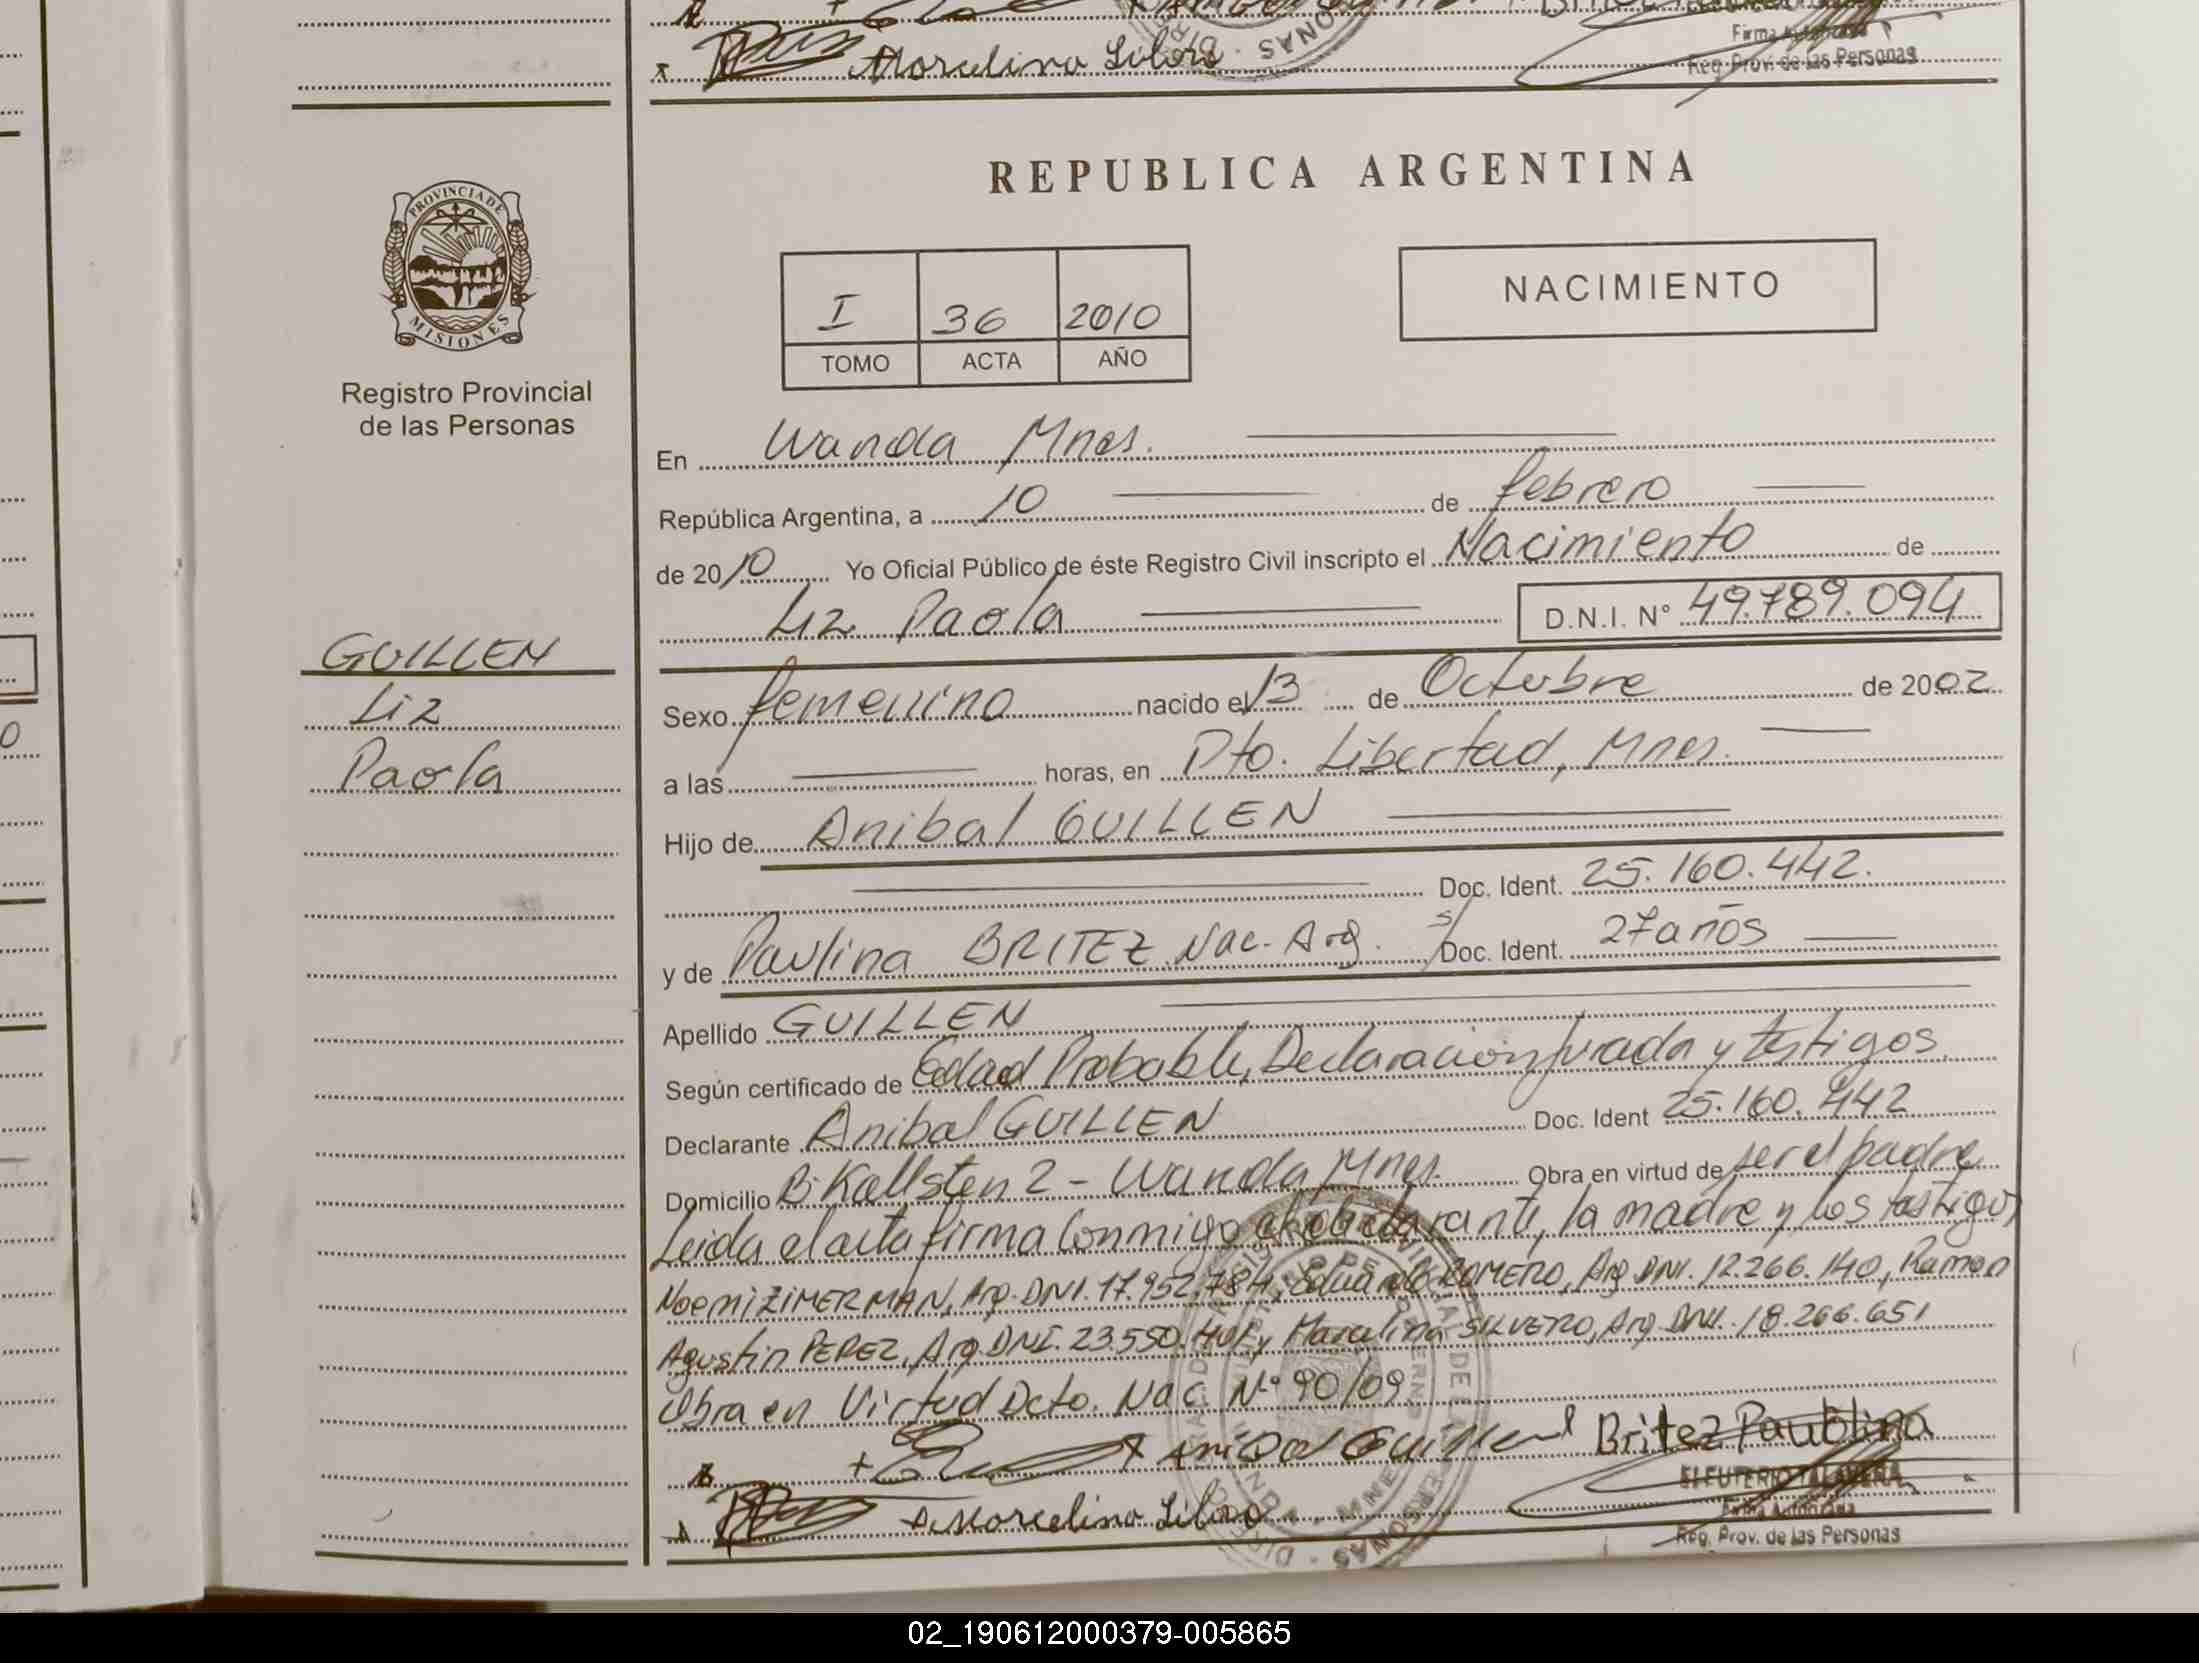 Marcelino Silvero
Firma Autorizada
Reg. Prov. de las Personas
REPUBLICA ARGENTINA
PROVINCIA DE
MISIONES
Registro Provincial
de las Personas
I 36 2010
TOMO ACTA AÑO
NACIMIENTO
En Wanda Mnes.
República Argentina, a 10 de febrero
de 2010 Yo Oficial Público de éste Registro Civil inscripto el Nacimiento de
Liz Paola D.N.I. N° 49.789.094
GUILLEN
Liz
Paola
Sexo femenino nacido el 13 de Octubre de 2002
a las horas, en Pto. Libertad, Mnes.
Hijo de Anibal GUILLEN
Doc. Ident. 25.160.442.
y de Paulina BRITEZ Nac. Arg. s/ Doc. Ident. 27 años
Apellido GUILLEN
Según certificado de Edad Probable, Declaración Jurada y testigos.
Declarante Anibal GUILLEN Doc. Ident 25.160.442
Domicilio B. Kallsten 2 - Wanda Mnes. Obra en virtud de ser el padre
Leida el acta firma conmigo el declarante, la madre y los testigos
Noemi ZIMERMAN, Arg. DNI. 17.952.784, Eduardo ROMERO, Arg. DNI. 12.266.140, Ramon
Agustin PEREZ, Arg. DNI. 23.550.401 y Marcelina SILVERO, Arg. DNI. 18.266.651
Obra en Virtud Dcto. Nac. N° 90/09
Anibal Guillen Britez Paublina
ELEUTERIO TALAVERA
Marcelino Silvero
Firma Autorizada
Reg. Prov. de las Personas
02_190612000379-005865